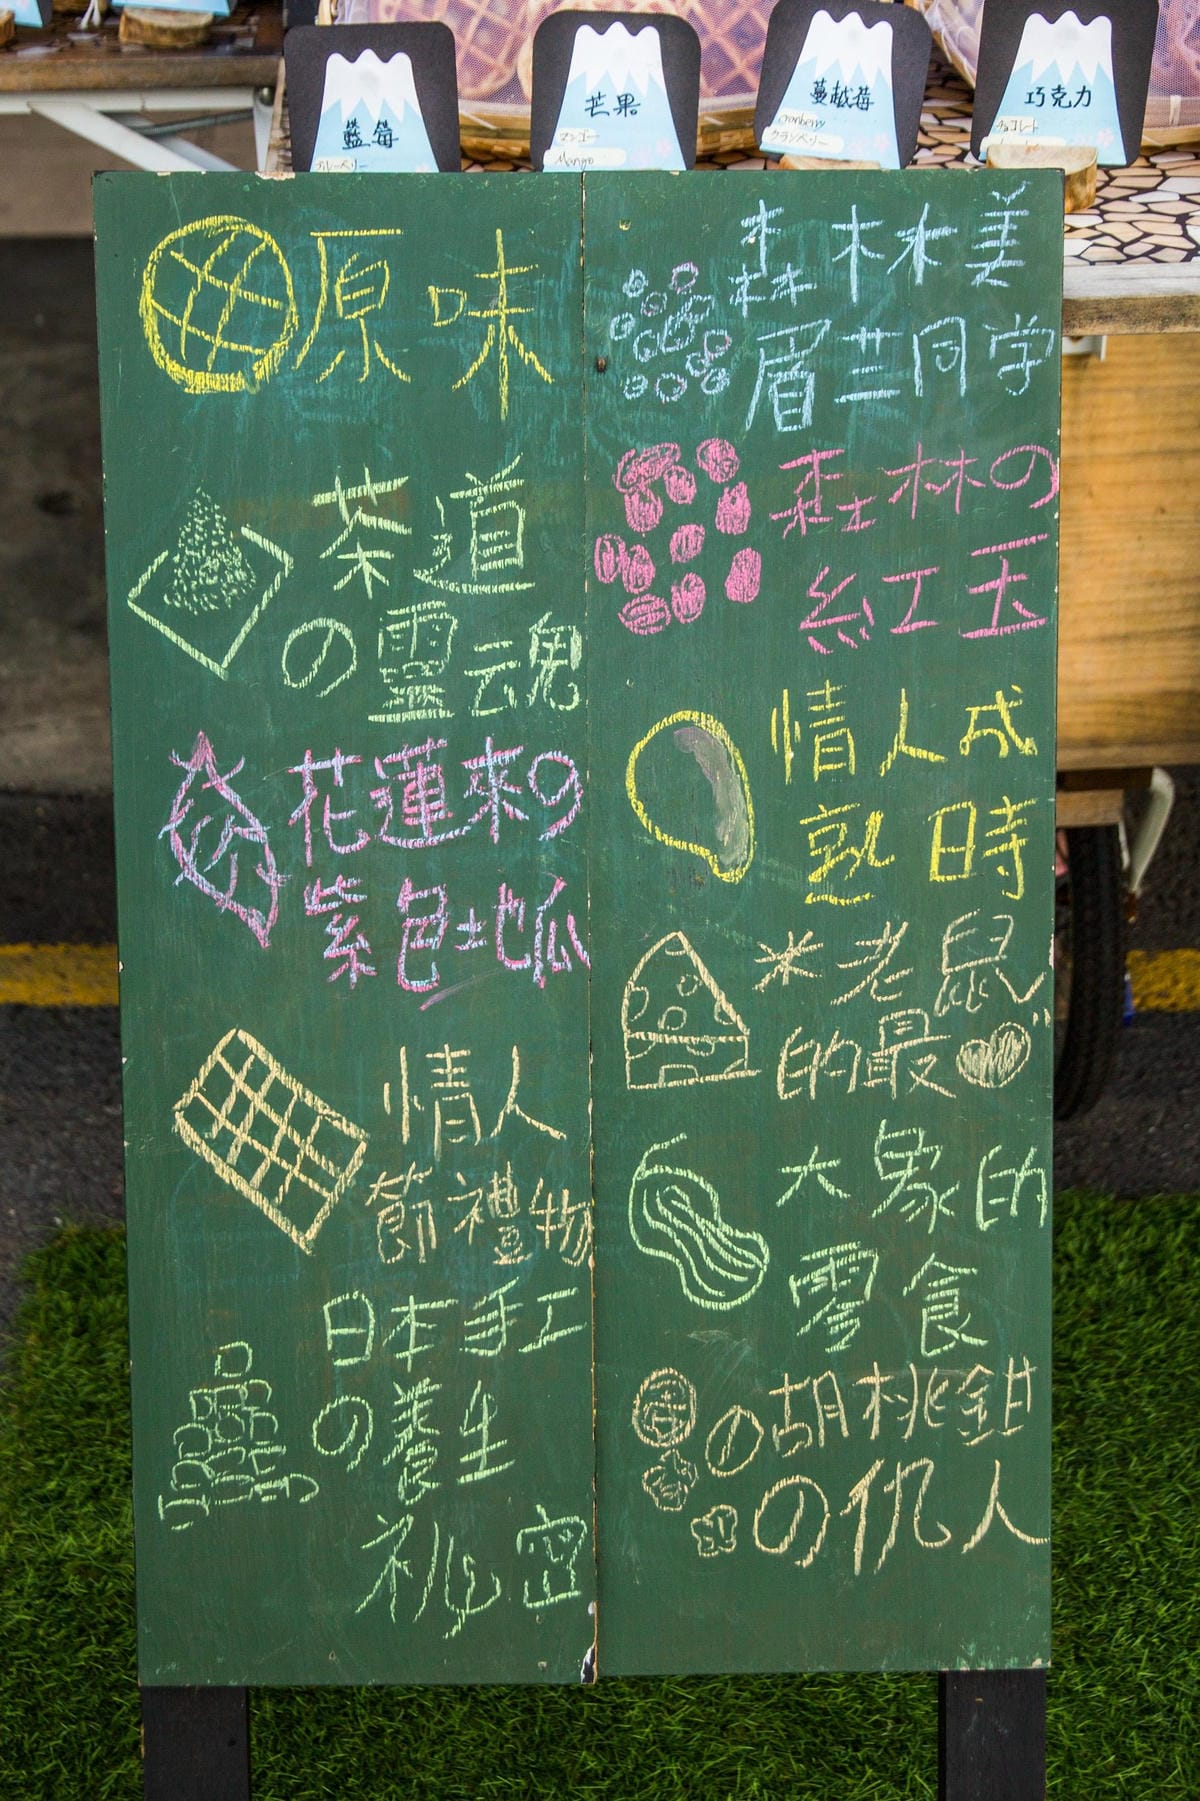 藍莓
ブルーベリー
芒果
マンゴー
Mango
蔓越莓
Cranberry
クランベリー
巧克力
チョコレート
原味
茶道
の靈魂
花蓮來の
紫色地瓜
情人
節禮物
日本手工
の養生
祕密
森林林美
眉芸同学
森林の
紅玉
情人成
熟日時
米老鼠
的最
大象的
零食
胡桃鉗
の仇人